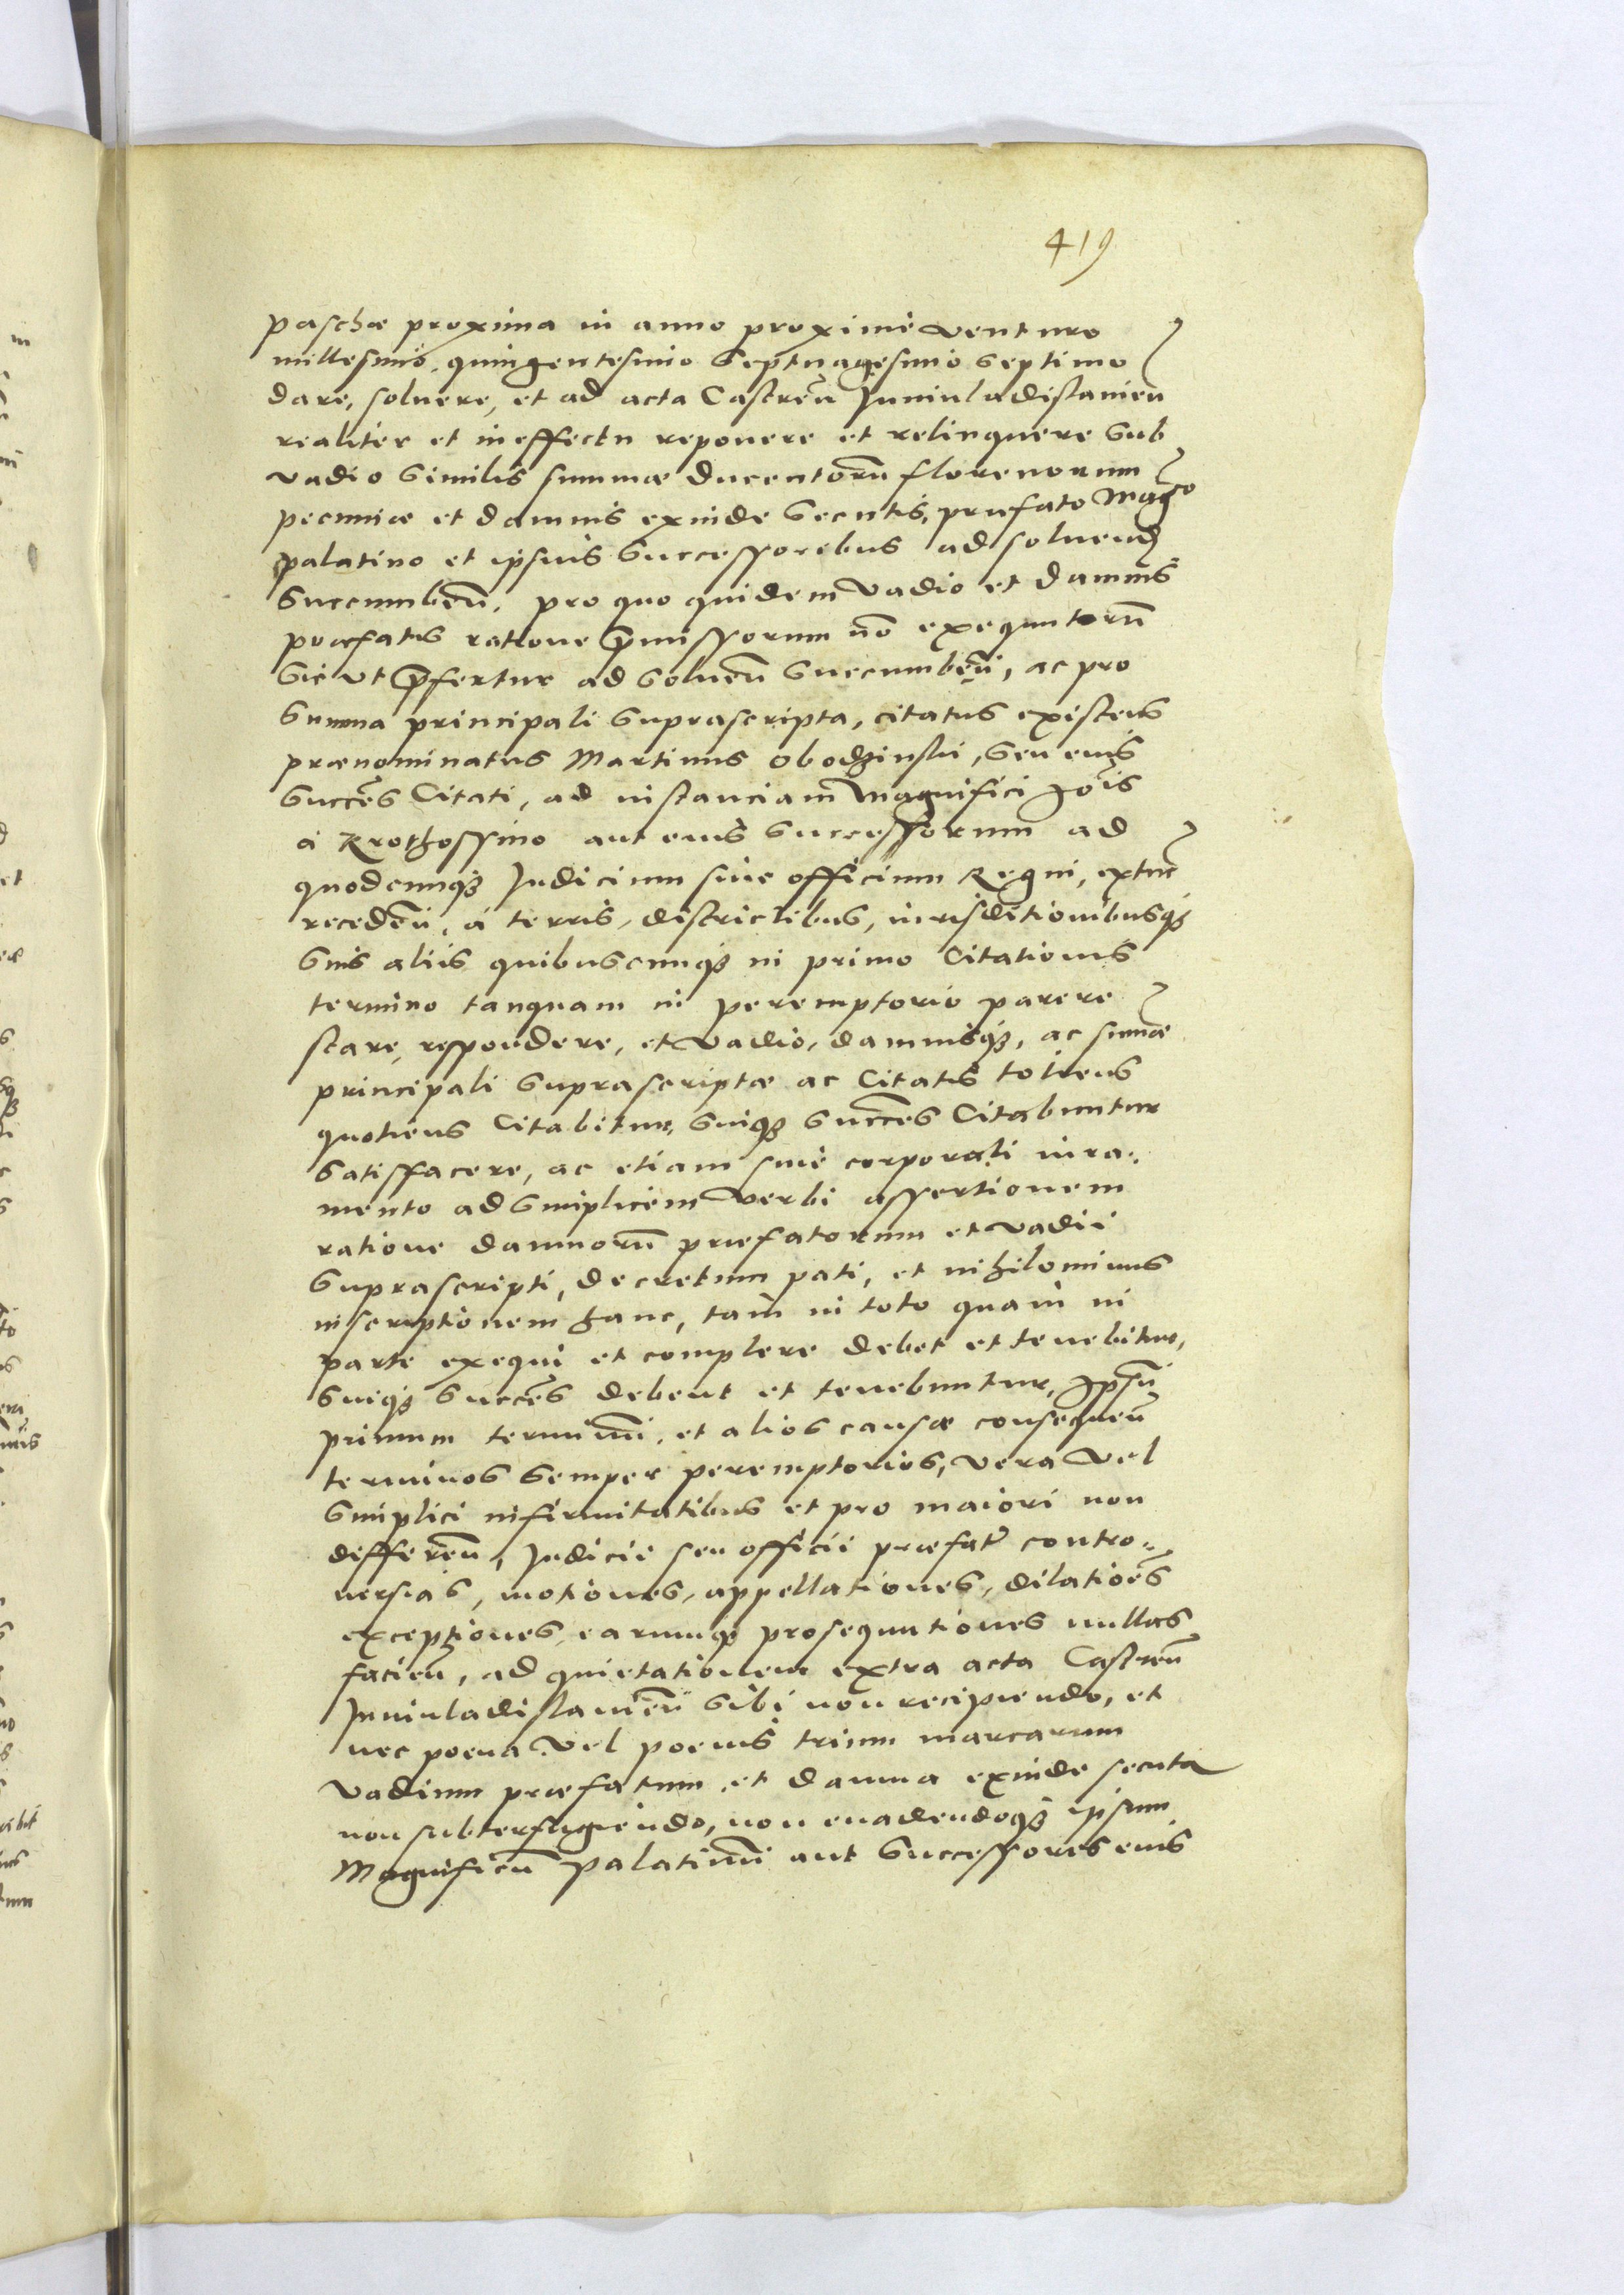 419
paschæ proxima in anno proxime venturo
millesimo, quingentesimo septuagesimo septimo
dare, soluere, et ad acta Castreñ Juniuladislauieñ
realiter et in effectu reponere et relinquere sub
vadio similis summæ ducentorũ florenorum
pecuniæ et damnis exinde secutis, præfato Magco
palatino et ipsius successoribus ad soluend
succumbeñ, pro quo quidem vadio et damnis
præfatus ratione p̃missorum nõ exequutorũ
sic vt p̃fertur ad soluenũ succumbeñ, ac pro
summa principali suprascripta, citatus existens
prænominatus Martinus Obodzinski, seu eius
succes̃ Citati, ad instanciam Magnifici Joĩs
a Krothossino aut eius successorum ad
quodcunq3 Judicium siue officium Regni, extunc
recedeñ, a terris, districtibus, iurisditionibusq3
suis aliis quibuscunq3 in primo Citationis
termino tanquam in peremptorio parere
stare, respondere, et vadio, damnisq3, ac sum̃æ
principali suprascriptæ ac Citatis totiens
quotiens Citabitur, suiq3 succes̃ Citabuntur
satisfacere, ac etiam sine corporali iura„
mento ad simplicem verbi assertionem
ratione damnorũ præfatorum et vadii
suprascripti, decretum pati, et nihilominus
inscriptionem hanc, tam in toto quam in
parte exequi et complere debet et tenebitur,
suiq3 succes̃ debent et tenebuntur, Ipsũ
primum terminũ, et alios causæ consequeñ
terminos semper peremptorios, vera vel
simplici infirmitatibus et pro maiori non
differeñ, Judicii seu officii præfat̃ contro„
uersias, motiones, appellationes, dilatioẽs
exceptiones, earumq3 prosequutiones nullas
facieñ, ad quietationem extra acta Castreñ
Juniuladislauieñ sibi non recipiendo, et
nec poena vel poenis trium marcarum
vadium præfatum, et damna exinde secuta
non subterfugiendo, non euadendoq3 ipsum
Magnificũ palatinũ aut successores eius